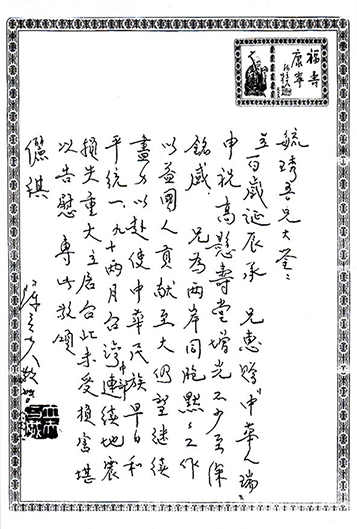 福壽
康寧
毓琦吾兄大鑒：
立百歲誕辰承 兄惠贈"中華人瑞"
申祝 高懸壽堂增光不少至深
銘感 兄為兩岸同胞默々工作
以益國人貢献至大仍望继续
盡力以赴使中華民族早日和
平統一九十两月台灣中部連续地震
損失重大立居台北未受損害堪
以告慰 專此敬頌
儷祺
陳立夫敬啓